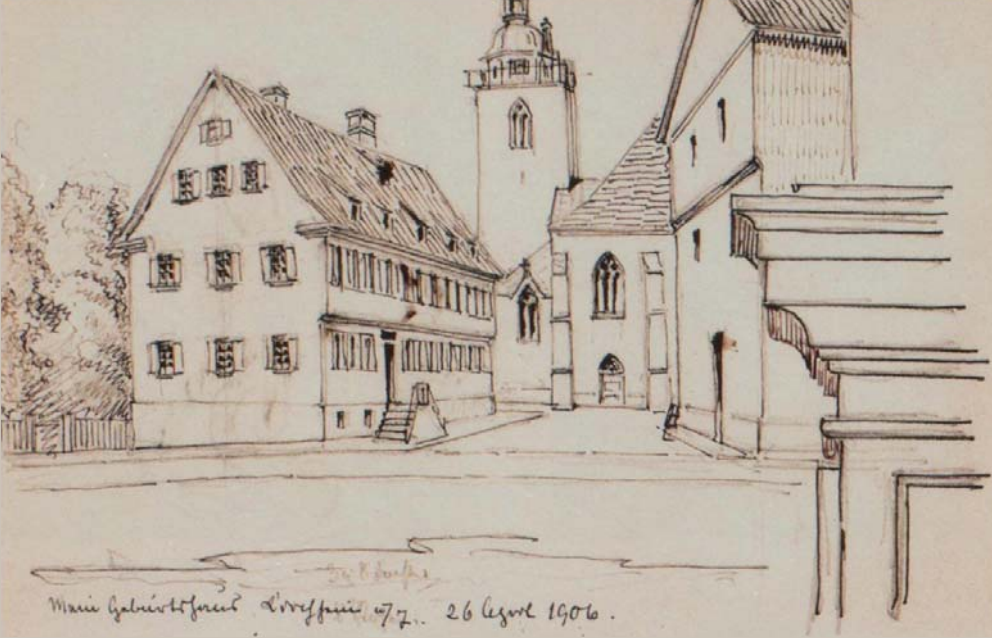 Mein Geburtshaus Kirchheim u/T. 26 April 1906.